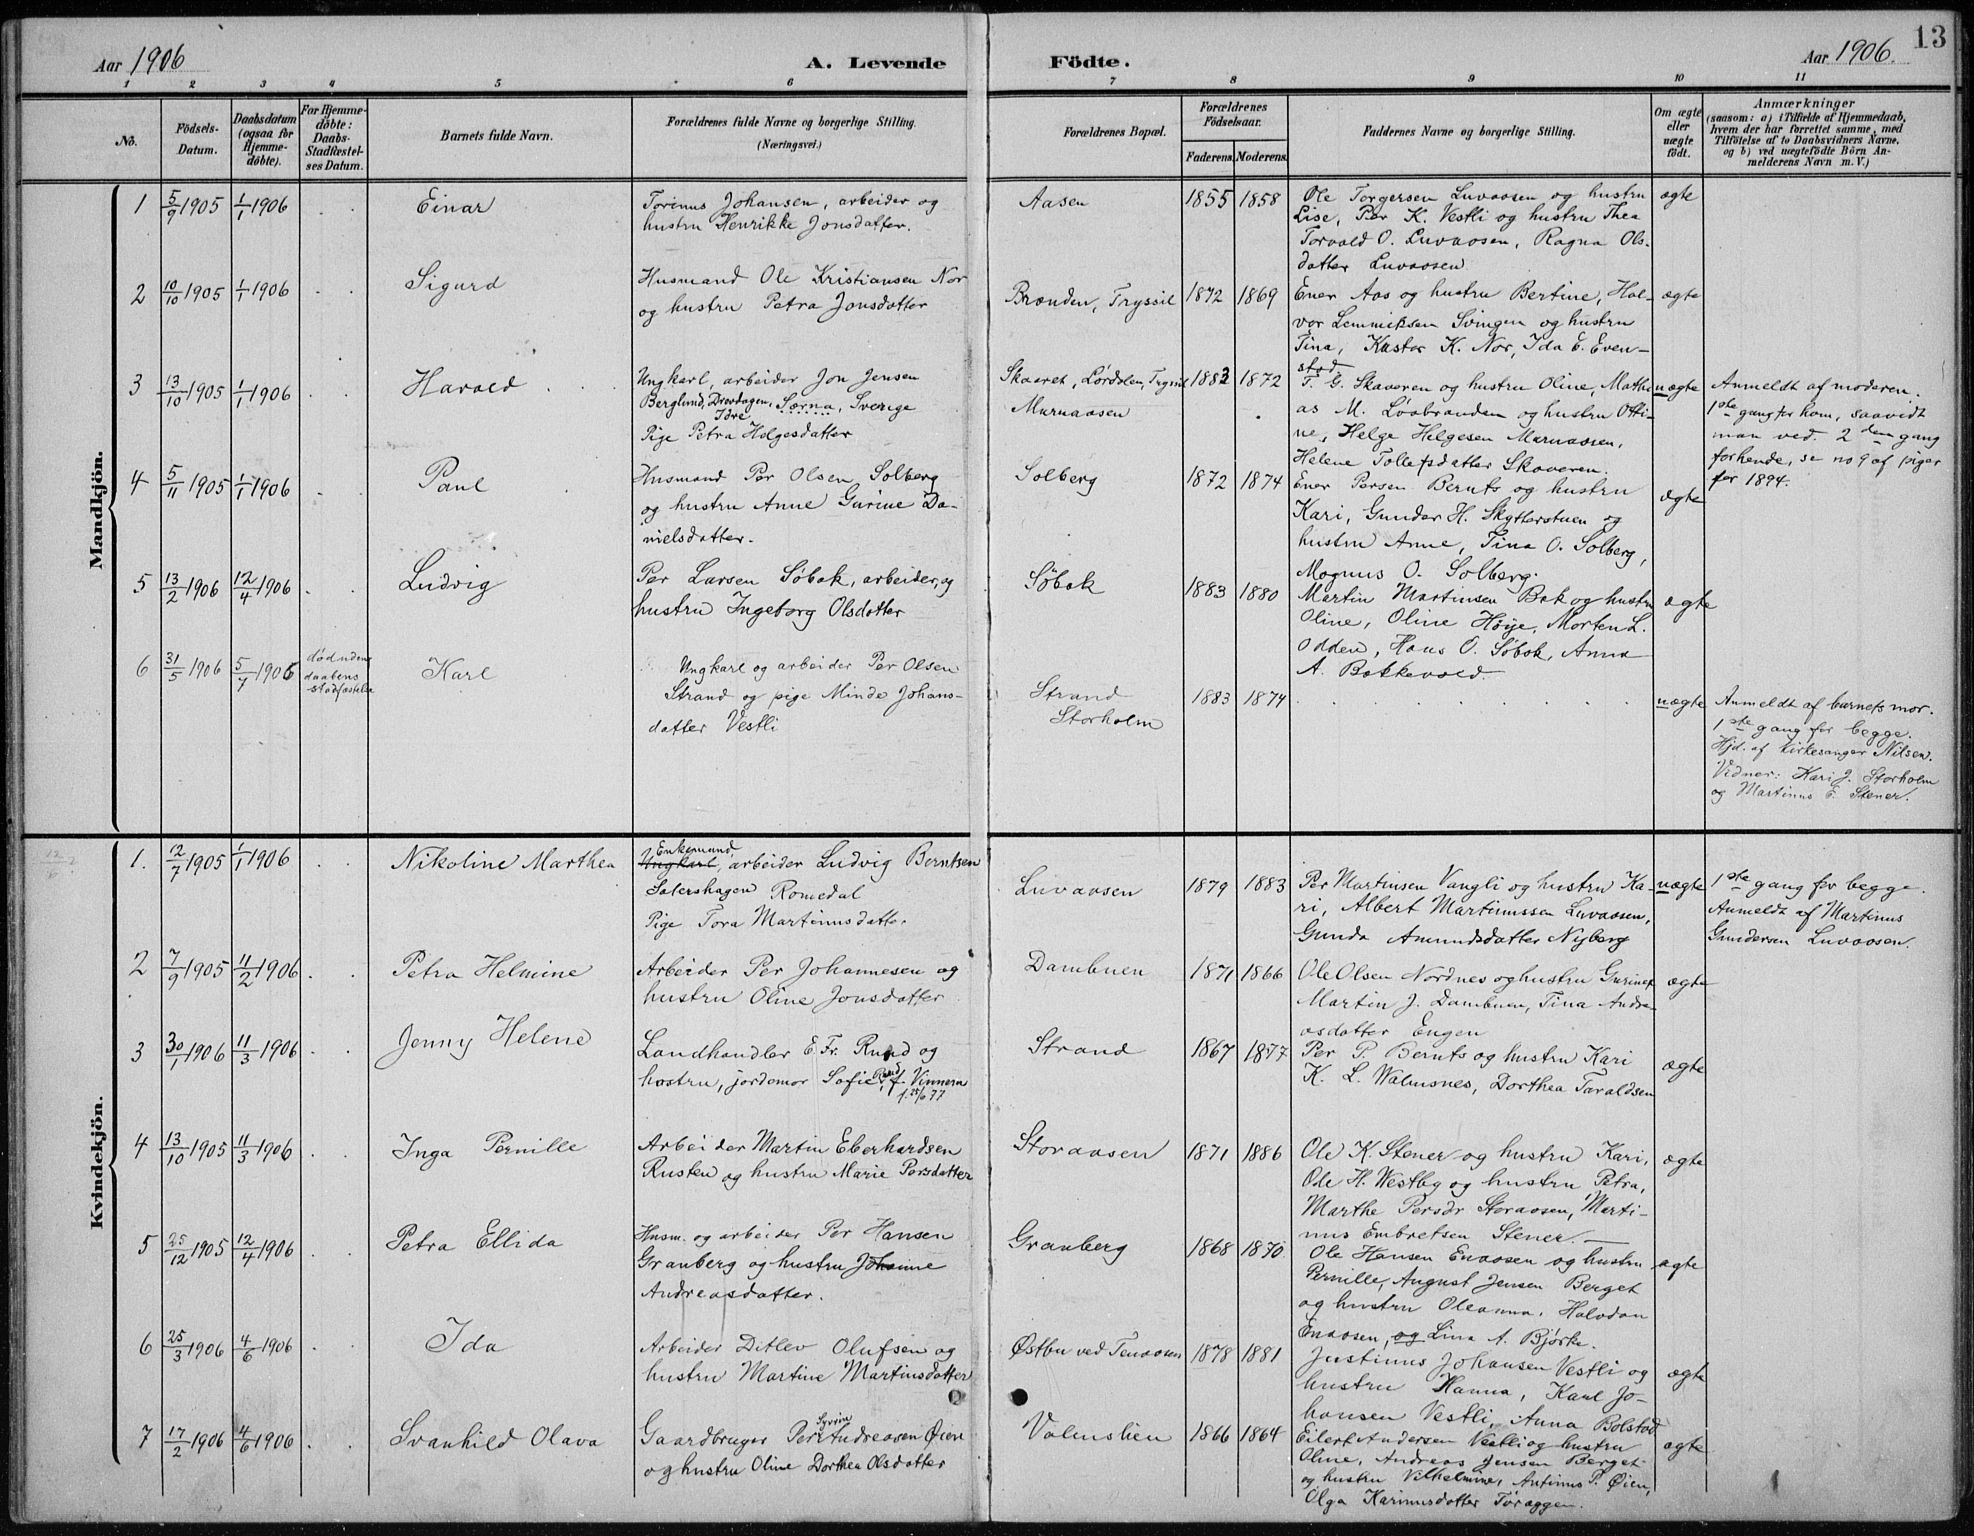 13
Aar 1906
A. Levende Födte.
Aar 1906.
1 2 3 4 5 6 7 8 9 10 11
No.
Födsels-Datum.
Daabsdatum (ogsaa for Hjemme-döbte).
For Hjemme-döbte: Daabs-Stadfæstel-ses Datum.
Barnets fulde Navn.
Forældrenes fulde Navne og borgerlige Stilling. (Næringsvei.)
Forældrenes Bopæl.
Forældrenes Födselsaar.
Faderens. Moderens.
Faddernes Navne og borgerlige Stilling.
Om ægte eller uægte födt.
Anmærkninger
(saasom: a) i Tilfælde af Hjemmedaab,
hvem der har forrettet samme, med
Tilföielse af to Daabsvidners Navne,
og b) ved uægtefödte Börn An-
melderens Navn m. V.)
Mandkjön.
1 5/9 1905 1/1 1906 Einar
Torinus Johansen, arbeider og
hustru Henrikke Jonsdatter.
Aasen 1855 1858
Ole Torgersen Luvaasen og hustru
Lise, Per K. Vestli og hustru Thea
Torvald O. Luvaasen, Ragna Ols-
datter Luvaasen
ægte
2 10/10 1905 1/1 1906 Sigurd
Husmand Ole Kristiansen Nor
og hustru Petra Jonsdatter
Brænden, Tryssil 1872 1869
Ener Aas og hustru Bertine, Hal-
vor Lemmiksen Svingen og hustru
Tina, Kaster K. Nor, Ida E. Even-
stad
ægte
3 13/10 1905 1/1 1906 Harald
Ungkarl, arbeider Jon Jensen
Berglund, Drevdagen, Særna, Sverige
Idre
Pige Petra Helgesdatter
Skaaret, Lørdalen, Trysil
Murnaasen
1882 1872
T. G. Skaaren og hustru Oline, Mathi-
as M. Løvbranden og hustru Otti-
ne, Helge Helgesen Murnaasen,
Helene Tollefsdatter Skaaren.
uægte
Anmeldt af moderen.
1ste gang for ham, saavidt
man ved. 2den gang
for hende, se no 9 af piger
for 1894.
4 5/11 1905 1/1 1906 Paul
Husmand Per Olsen Solberg
og hustru Anne Gurine Da-
nielsdatter.
Solberg 1872 1874
Ener Persen Bernts og hustru
Kari, Gunder H. Skytterstuen og
hustru Anne, Tina O. Solberg,
Magnus O. Solberg.
ægte
5 13/2 1906 12/4 1906 Ludvig
Per Larsen Søbak, arbeider, og
hustru Ingeborg Olsdatter
Søbak 1883 1880
Martin Martinsen Bak og hustru
Oline, Oline Høye, Morten L.
Odden, Hans O. Søbak, Anna
A. Bakkevold.
ægte
6 31/5 1906 5/7 1906 død uden
daabens
stadfæstelse
Karl
Ungkarl og arbeider Per Olsen
Strand og pige Minde Johans-
datter Vestli
Strand
Storholm
1883 1874
uægte
Anmeldt af barnets mor.
1ste gang for begge.
Hjd. af kirkesanger Nilsen.
Vidner: Kari J. Storholm
og Martinus E. Stener.
Kvindekjön.
1. 2/7 1905 1/1 1906 Nikoline Marthea
Enkemand
Ungkarl, arbeider Ludvig Berntsen
Satershagen Romedal
Pige Tora Martinusdatter
Luvaasen 1879 1883
Per Martinsen Vangli og hustru Ka-
ri, Albert Martinussen Luvaasen,
Gunda Amundsdatter Nyberg
uægte
1ste gang for begge.
Anmeldt af Martinus
Gundersen Luvaasen.
2 7/9 1905 11/2 1906 Petra Helmine
Arbeider Per Johannesen og
hustru Oline Jonsdatter
Dambuen 1871 1866
Ole Olsen Nordnes og hustru Gurine
Martin J. Dambuen, Tina Andre-
asdatter Engen
ægte
3 30/1 1906 11/3 1906 Jenny Helene
Landhandler E. Fr. Rund og
hustru, jordemor Sofie Rund f. Vinnem
f. 25/6 77
Strand 1867 1877
Per P. Bernts og hustru Kari
K. L. Walmsnes, Dorthea Taraldsen
ægte
4 13/10 1905 11/3 1906 Inga Pernille
Arbeider Martin Eberhardsen
Rusten og hustru Marie Persdatter
Storaasen 1871 1886
Ole K. Stener og hustru Kari,
Ole H. Westby og hustru Petra,
Marthe Persdr Storaasen, Marti-
nus Embretsen Stener.
ægte
5 25/12 1905 12/4 1906 Petra Ellida
Husm. og arbeider Per Hansen
Granberg og hustru Johanne
Andreasdatter.
Granberg 1868 1870
Ole Hansen Enaasen og hustru
Pernille, August Jensen Berget
og hustru Oleanna, Halvdan
Enaasen, og Lina A. Bjørke.
ægte
6 25/3 1906 4/6 1906 Ida
Arbeider Ditlev Olufsen og
hustru Martine Martinsdatter
Østbu ved Tenaasen 1878 1881
Justinus Johansen Vestli og
hustru Hanna, Karl Jo-
hansen Vestli, Anna Bolstad
ægte
7 17/2 1906 4/6 1906 Svanhild Olava
Gaardbruger Per Syver Andreasen Øien
og hustru Oline Dorthea Olsdatter
Valmslien 1866 1864
Eilert Andersen Vestli og hustru
Oline, Andreas Jensen Berget
og hustru Vilhelmine, Antinus P. Øien,
Olga Karinusdatter Toraggen.
ægte